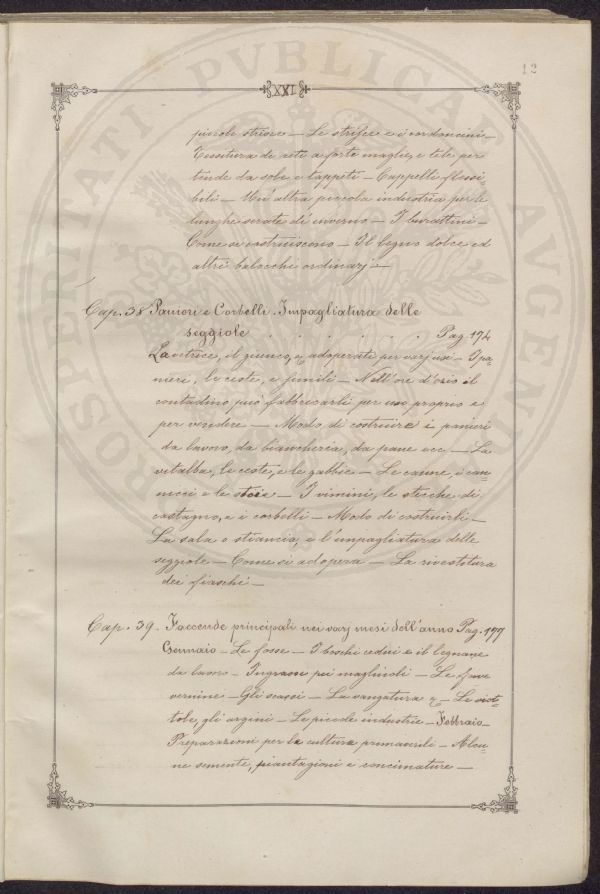 12
XXI
piccole stuoie – Le strisce e i cordoncini –
Tessitura di reti a forte maglie, e tele per
tende da sole, e tappeti – Cappelli flessi-
bili – Un' altra piccola industria per le
lunghe serate di inverno – I burattini –
Come si costruiscono – Il legno dolce ed
altri balocchi ordinarj –
Cap. 38 Panieri e Corbelli. Impagliatura delle
seggiole . . . . . Pag. 174
La vetrice, il giunco, e, adoperati per varj usi – I pa-
nieri, le ceste, e simili – Nell' ore d'ozio il
contadino può fabbricarli per uso proprio e
per vendere – Modo di costruire i panieri
da lavoro, da biancheria, da pane ecc. – La
vitalba, le ceste, e le gabbie – Le canne, i can-
nicci e le stoie – I vimini, le stecche di
castagno, e i corbelli – Modo di costruirli –
La sala o stiancia, e l'impagliatura delle
seggiole – Come si adopera – La rivestitura
dei fiaschi –
Cap. 39. Faccende principali nei varj mesi dell'anno Pag. 177
Gennaio – Le fosse – I boschi cedui e il legname
da lavoro – Ingrassi pei magliuoli – Le fave
vernine – Gli scassi – La vangatura – Le viot-
tole, gli argini – Le piccole industrie – Febbraio –
Preparazioni per la cultura primaverili – Alcu-
ne semente, piantagioni e concimature –
PROSPERITATI PVBLICAE AVGENDAE